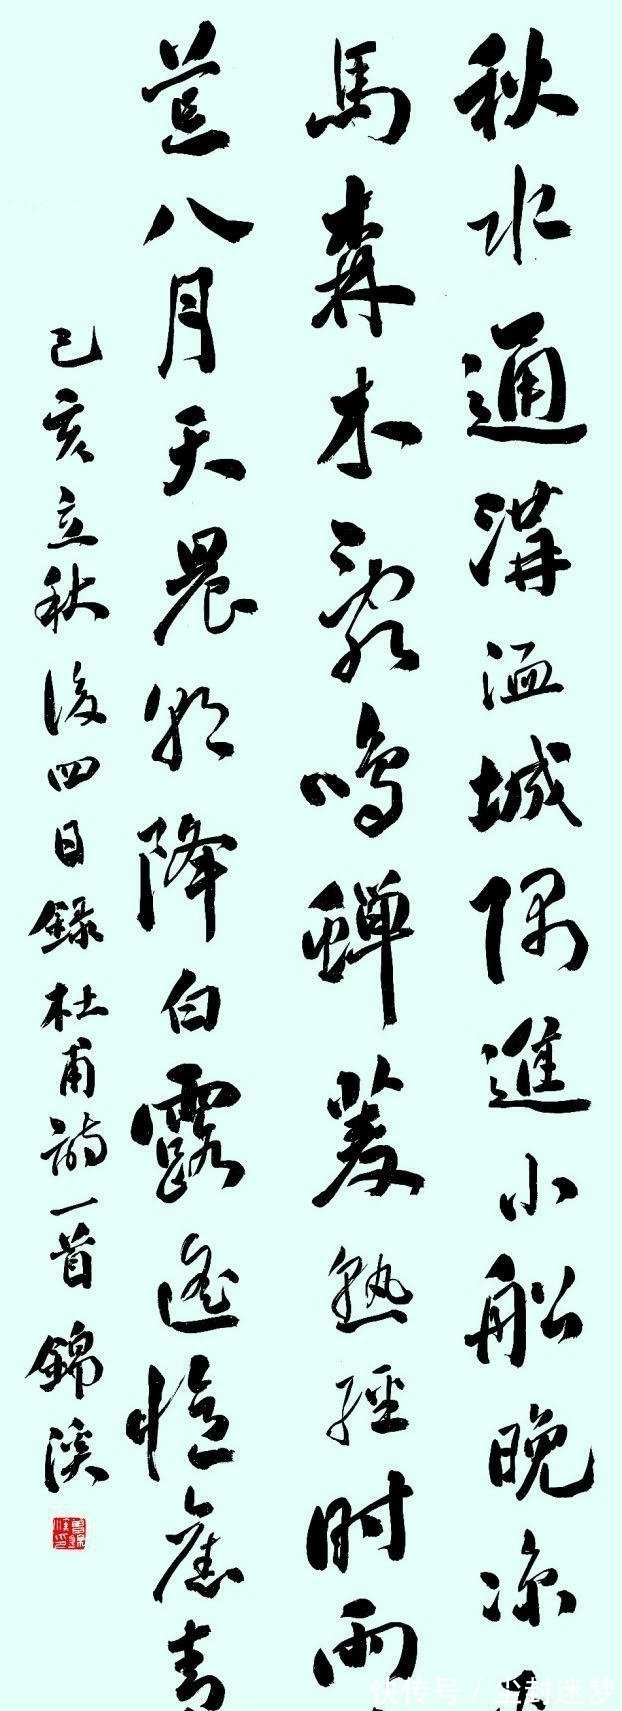 秋水通溝洫城隅進小船晚凉
馬森木亂鳴蝉菱熟經时雨
荒八月天晨朝降白露遙憶舊青
己亥立秋後四日錄杜甫詩一首 錦溪
快传号 / 尘封迷梦